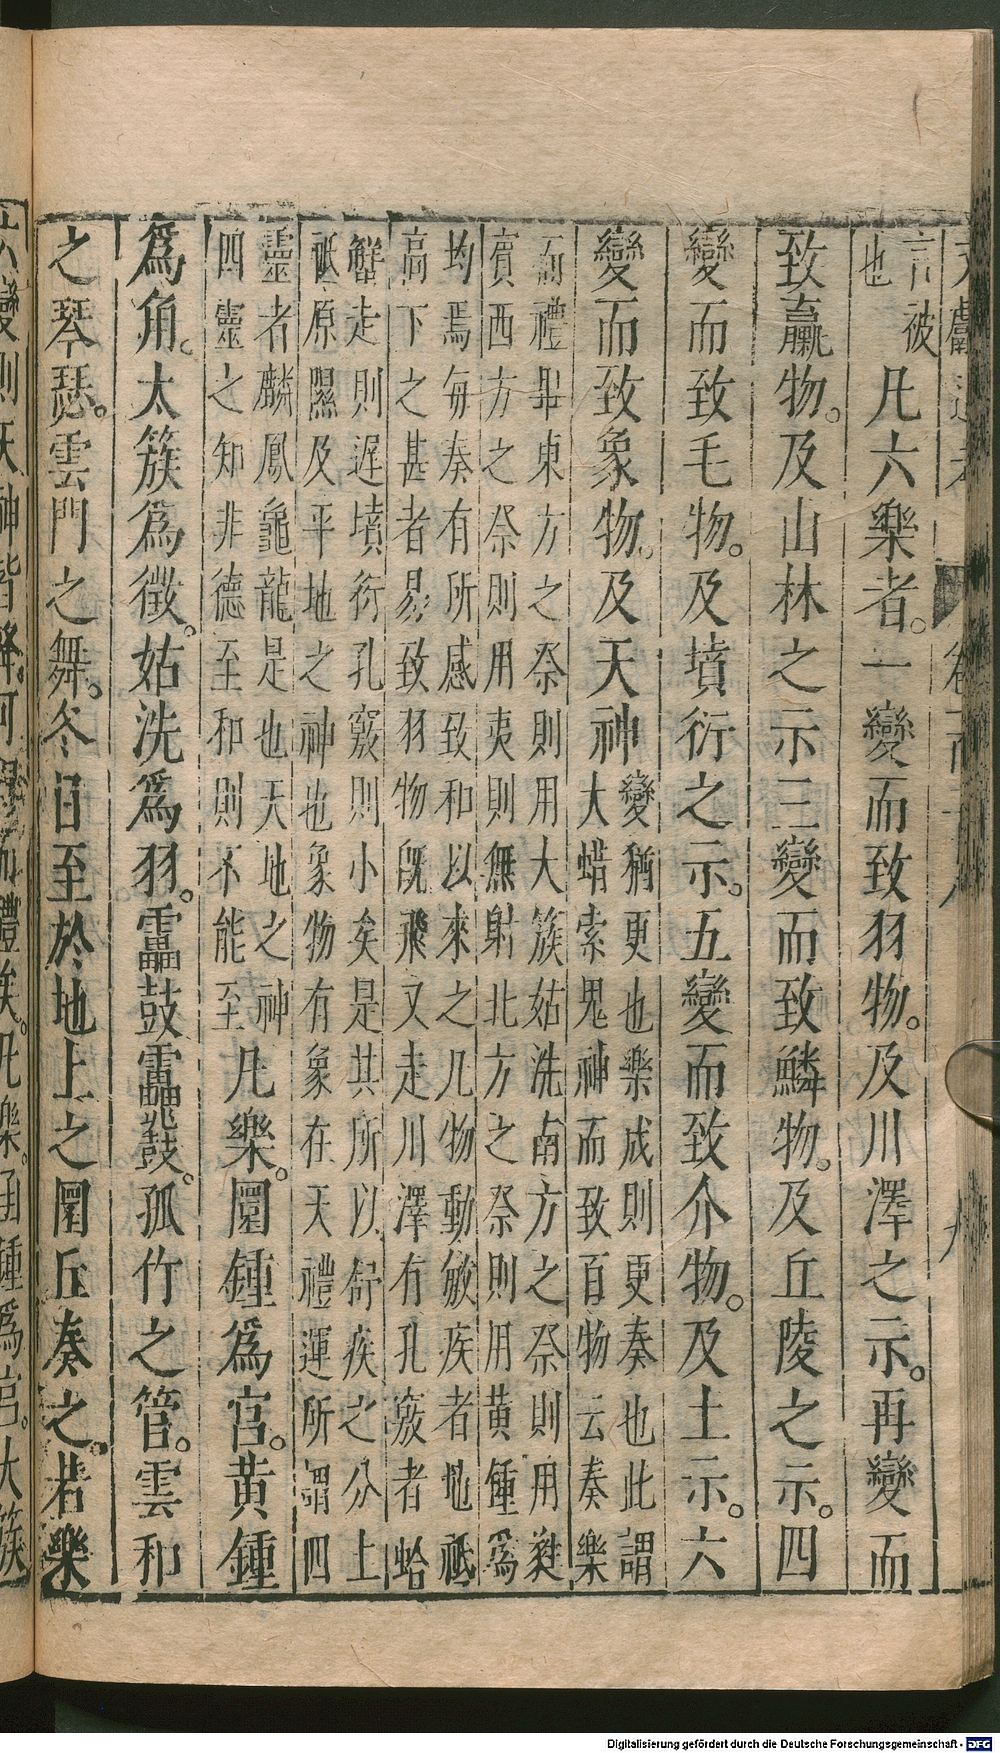 言被
也
凡六樂者。一變而致羽物。及川澤之示。再變而
致臝物。及山林之示三變而致鱗物。及丘陵之示。四
變而致毛物。及墳衍之示。五變而致介物。及土示。六
變而致象物。及天神
變猶更也樂成則更奏也此謂
大蜡索鬼神而致百物云奏樂
而禮畢東方之祭則用大簇姑洗南方之祭則用蕤
賓西方之祭則用夷則無射北方之祭則用黃鍾爲
均焉每奏有所感致和以來之凡物動敏疾者地祗
高下之甚者易致羽物旣飛又走川澤有孔竅者蛤
蟹走則遲墳衍孔竅則小矣是其所以舒疾之分土
祗原隰及平地之神也象物有象在天禮運所謂四
靈者麟鳳龜龍是也天地之神
四靈之知非德至和則不能至
凡樂。圜鍾爲宮。黃鍾
爲角。太簇爲徵。姑洗爲羽。靁鼓靁鼗。孤竹之管。雲和
之琴瑟。雲門之舞。冬日至於地上之圜丘奏之。若樂
六變則天神皆降。可得而禮矣。凡樂。函鍾爲宮。大簇
Digitalisierung gefördert durch die Deutsche Forschungsgemeinschaft - DFG